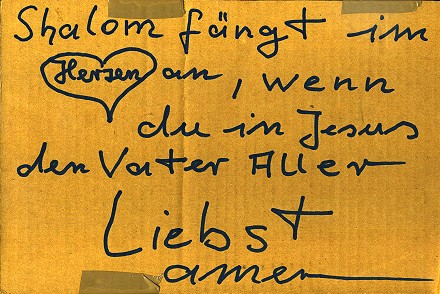 Shalom fängt im
Herzen an, wenn
du in Jesus
den Vater Aller
Liebst
amen